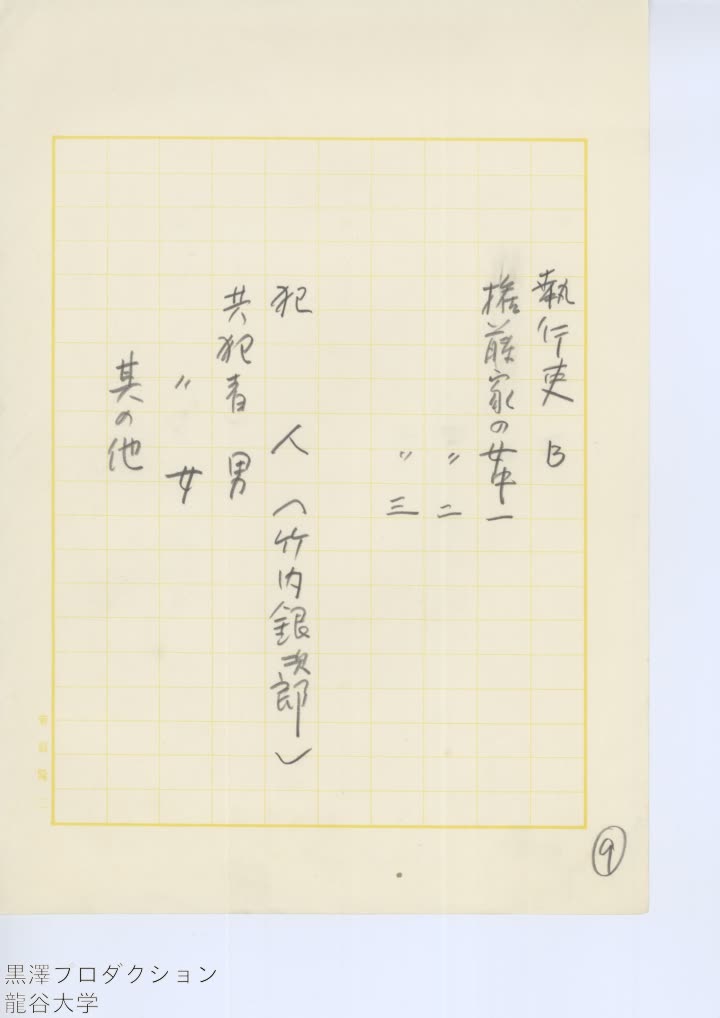 執行吏 B
権藤家の女中 一
〃 二
〃 三
犯 人 (竹内銀次郎)
共犯者 男
〃 女
其の他
⑨
黒澤プロダクション
龍谷大学